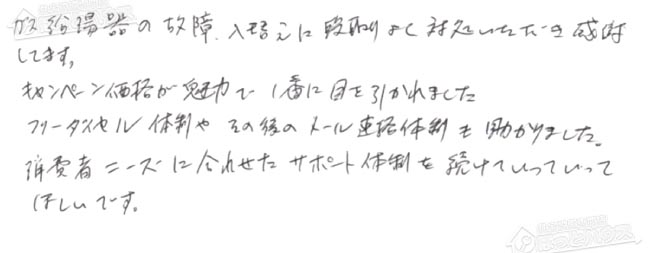 ガス給湯器の故障、入替えに段取りよく対処いただき感謝
してます。
キャンペーン価格が魅力で1番に目を引かれました
フリーダイヤル体制やその後のメール連絡体制も助かりました。
消費者ニーズに合わせたサポート体制を続けていっていって
ほしいです。